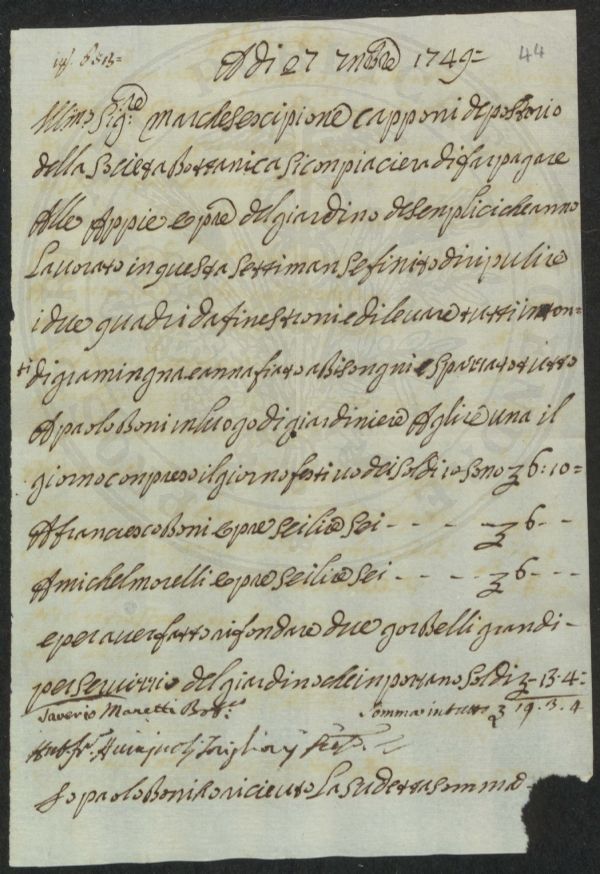 44
Adi 27 7mbre 1749=
Illmo Sigre Marchese Scipione Capponi depositario
della Societa Bottanica si conpiaciera di far pagare
Alle Appie opre del giardino de senplici che anno
Lauorato in questa settiman se finito di ripulire
i due quadri da finestroni e di leuare tutti in ton-
ti di gramingna e annafiato a Bisongni e spazzato tutto
A paolo Boni in luogo di giardiniere A glire una il
giorno conpreso il giorno festiuo dei soldi 10 sono 6:10=
A francesco Boni opre sei lire sei - - - - 6 - -
A michel morelli opre sei lire sei - - - - 6 - - -
e per auer fatto rifondare due gorbelli grandi -
per seruizzio del giardino che inportano soldi - 13.4=
Saverio Manetti Bottco Somma in tutto 19.3.4
Io paolo Boni o riceuto La sudetta somma